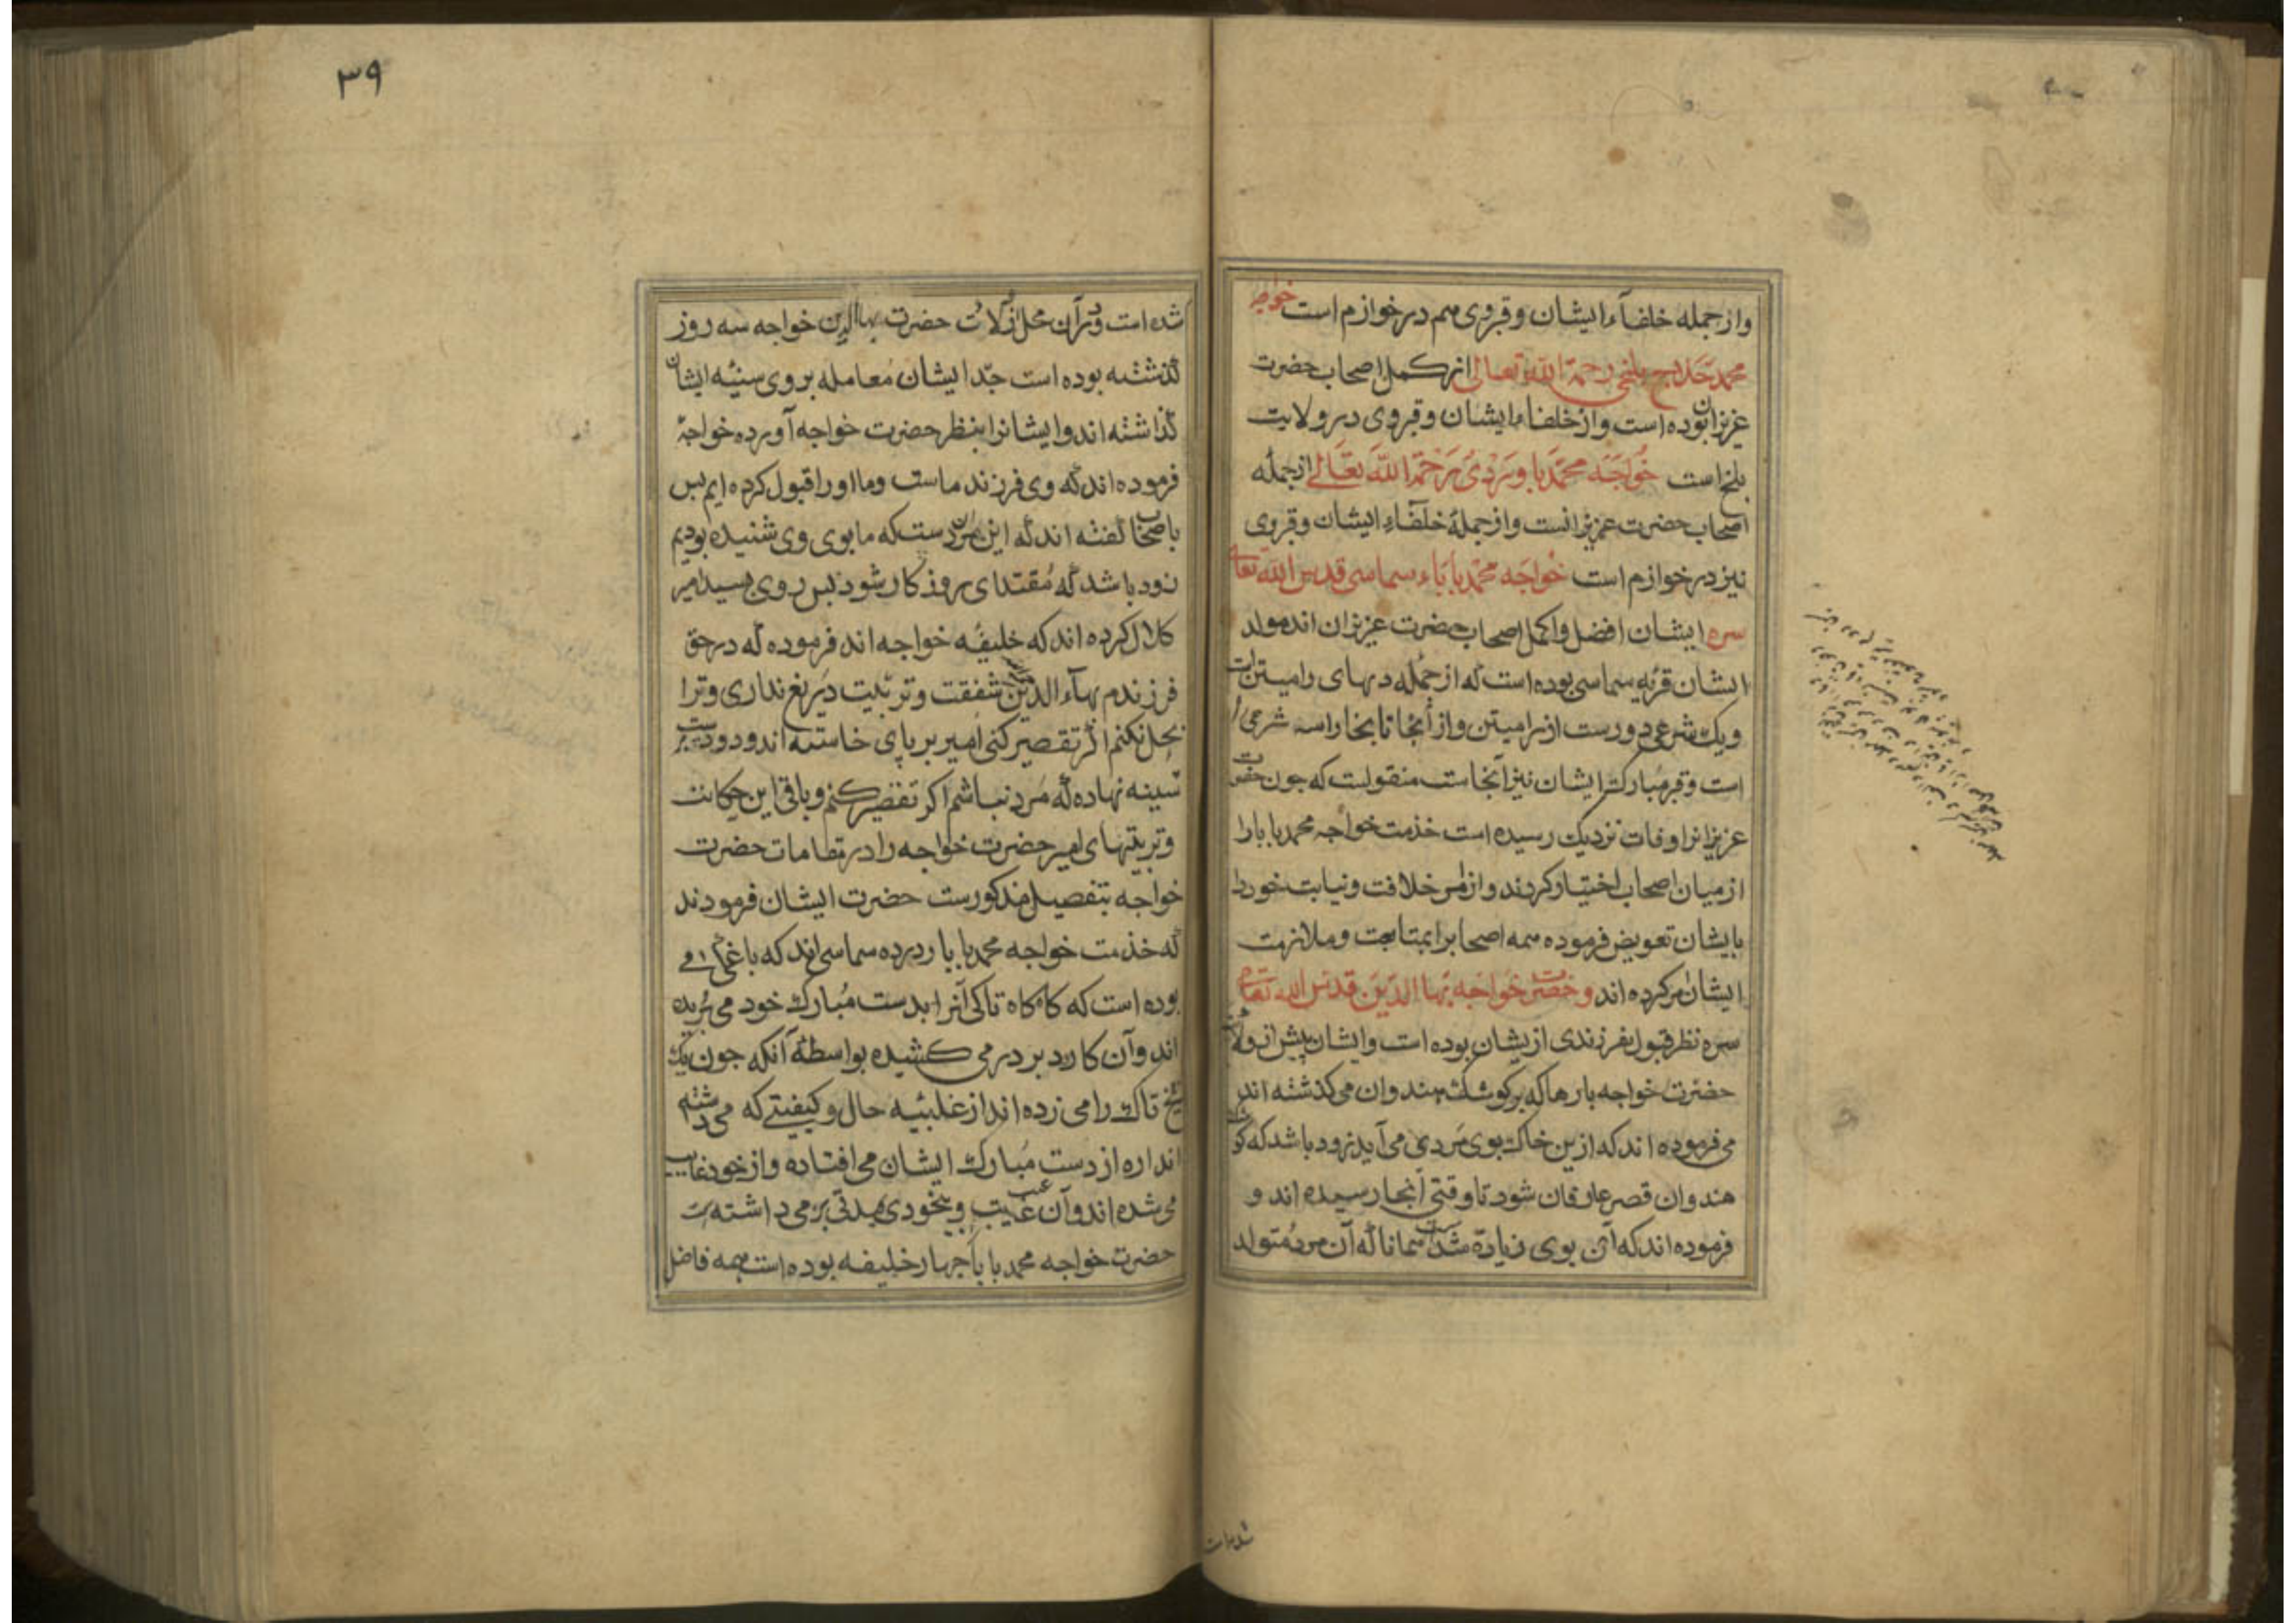 واز جمله خلفآء ایشان وقبروی هم در خوارزم است خواجه
محمد حلاج بلخی رحمة الله تعالی از کمل اصحاب حضرت
عزیزان بوده است واز خلفاء ایشان وقبروی در ولایت
بلخ است خواجه محمد باوردی رحمة الله تعالی از جمله
اصحاب حضرت عزیزانست واز جملهٔ خلفآء ایشان وقبروی
نیز در خوارزم است خواجه محمد باباء سماسی قدس الله تعالی
سره ایشان افضل واکمل اصحاب حضرت عزیزان اند مولد
ایشان قریه سماسی بوده است که از جمله دیهای رامیتن است
ویک شرعی دورست از رامیتن واز آنجا تا بخارا سه شرعی
است وقبر مبارک ایشان نیز آنجاست منقولست که جون حضرت
عزیزانرا وفات نزدیک رسیده است خذمت خواجه محمد بابا را
از میان اصحاب اختیار کردند واز امر خلافت ونیابت خود را
بایشان تعویض فرموده همه اصحابرا بمتابعت وملازمت
ایشان امر کرده اند وحضرت خواجه بهاالدین قدس الله تعالی
سره نظر قبول بفرزندی ازیشان بوده است وایشان پیش از ولادت
حضرت خواجه بارها که بر کوشک هندوان می کذشته اند
می فرموده اند که ازین خاک بوی مردی می آید زود باشد که کوشک
هندوان قصر عارفان شود تا وقتی آنجا رسیده اند و
فرموده اند که آن بوی زیادة شده است همانا که آن مرد متولد
شده است
٣٩
شده است ودر آن محل از ولادت حضرت بهاالدین خواجه سه روز
گذشته بوده است جدّ ایشان معامله بر روی سینه ایشان
گذاشته اند وایشانرا بنظر حضرت خواجه آورده خواجه
فرموده اند که وی فرزند ماست وما اورا قبول کرده ایم پس
باصحاب گفته اند که این آن مردست که ما بوی وی شنیده بودیم
زود باشد که مُقتدای روزکار شود پس روی بسید امیر
کلال کرده اند که خلیفه خواجه اند فرموده که در حق
فرزندم بهآء الدین شفقت وتربیت دریغ نداری وترا
بحل نکنم اگر تقصیر کنی امیر بر پای خاسته اند ودو دست بر
سینه نهاده که مرد نباشم اکر تقصیر کنم وباقی این حکایت
وتربیتهای امیر حضرت خواجه را در مقامات حضرت
خواجه بتفصیل مذکورست حضرت ایشان فرمودند
که خذمت خواجه محمد بابا را در ده سماسی اند که باغی
بوده است که کاه کاه تاکی آنرا بدست مُبارک خود می بُریده
اند وآن کارد بر در می کشیده بواسطه آنکه جون یک
شخ تاک را می زده اند از غلبئیه حال وکیفیتی که می داشته
اند اره از دست مُبارک ایشان می افتاده واز خود غایب
می شده اند وآن غیبت وبیخودی مدتی بر می داشته است
حضرت خواجه محمد بابا را جهار خلیفه بوده است همه فاضل